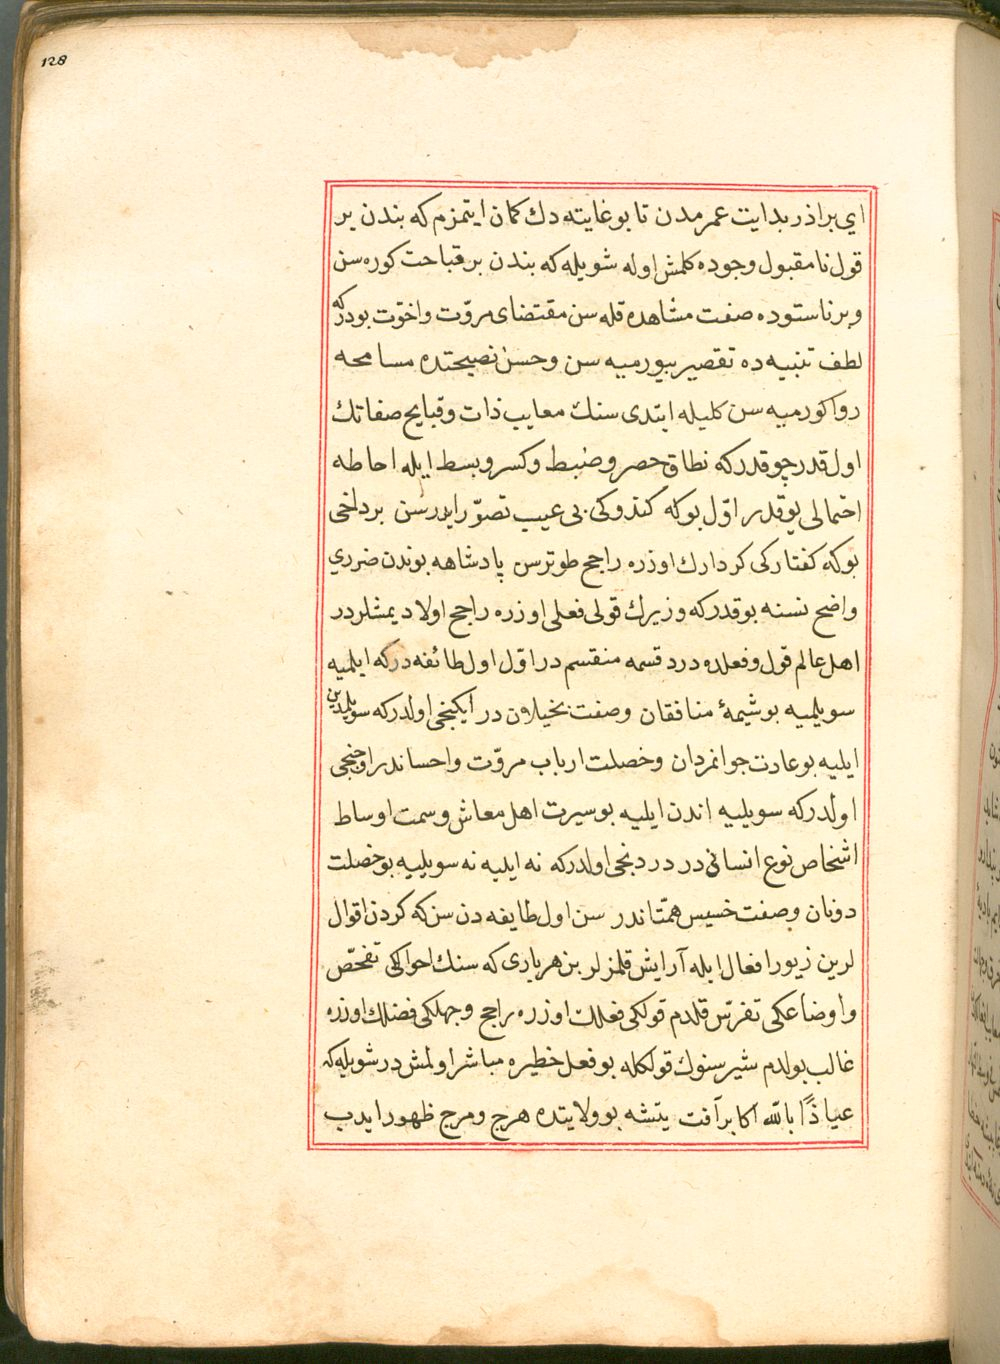 128
ای براذر بدایت عمرمدن تا بو غایته دك كمان ایتمزم كه بندن بر
قول نا مقبول وجوده كلمش اوله شویله كه بندن بر قباحت كوره سن
و بر ناستوده صفت مشاهده قله سن مقتضای مروّت و اخوّت بودركه
لطف تنبیه ده تقصیر بیورمیه سن و حسن نصیحتده مسامحه
روا كورمیه سن كلیله ایتدی سنك معایب ذات و قبایح صفاتك
اول قدر چوقدركه نطاق حصر و ضبط و كسر و بسط ایله احاطه
احتمالی یوقدر اوّل بوكه كندوكی بی عیب تصوّر ایدرسن بر دلخی
بوكه كفتاركی كردارك اوزره راجح طوترسن پادشاهه بوندن ضرری
واضح نسنه یوقدركه وزیرك قولی فعلی اوزره راجح اولا دیمشلردر
اهل عالم قول و فعلده درد قسمه منقسم در اوّل اول طائفه دركه ایلمیه
سویلمیه بو شیمۀ منافقان و صفت بخیلان در ایكنجی اولدركه سویلمدین
ایلیه بو عادت جوانمردان و خصلت ارباب مروّت و احساندر اوجنجی
اولدركه سویلیه اندن ایلیه بو سیرت اهل معاش و سمت اوساط
اشخاص نوع انسانی در دردنجی اولدركه نه ایلیه نه سویلیه بو خصلت
دونان و صفت خسیس همّتاندر سن اول طایفه دن سن كه كردن اقوال
لرین زیور افعال ایله آرایش قلمزلر بن هر باری كه سنك احوالكی تفحّص
و اوضاعكی تفرّس قلدم قولكی فعلك اوزره راجح و جهلكی فضلك اوزره
غالب بولدم شیر سنوك قولكله بو فعل خطیره مباشر اولمش در شویله كه
عیاذًا بالله اكا بر آفت یتشه بو ولایتده هرج و مرج ظهور ایدب